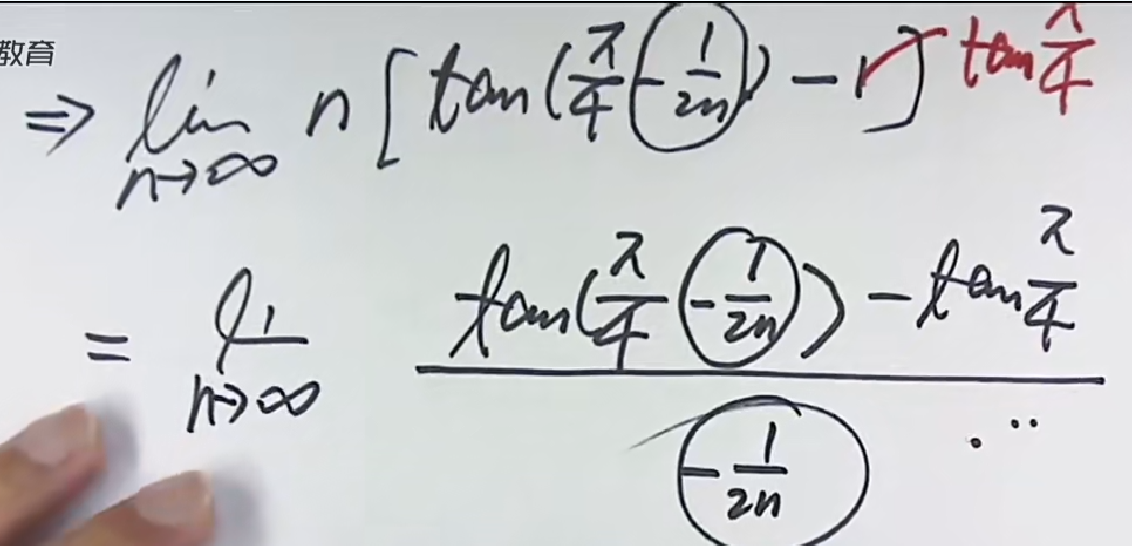 教育
⇒ lim n→∞ n [ tan( π/4 - 1/2n ) - 1 ] tan π/4
= li n→∞ ( tan( π/4 - 1/2n ) - tan π/4 ) / ( - 1/2n ) ...